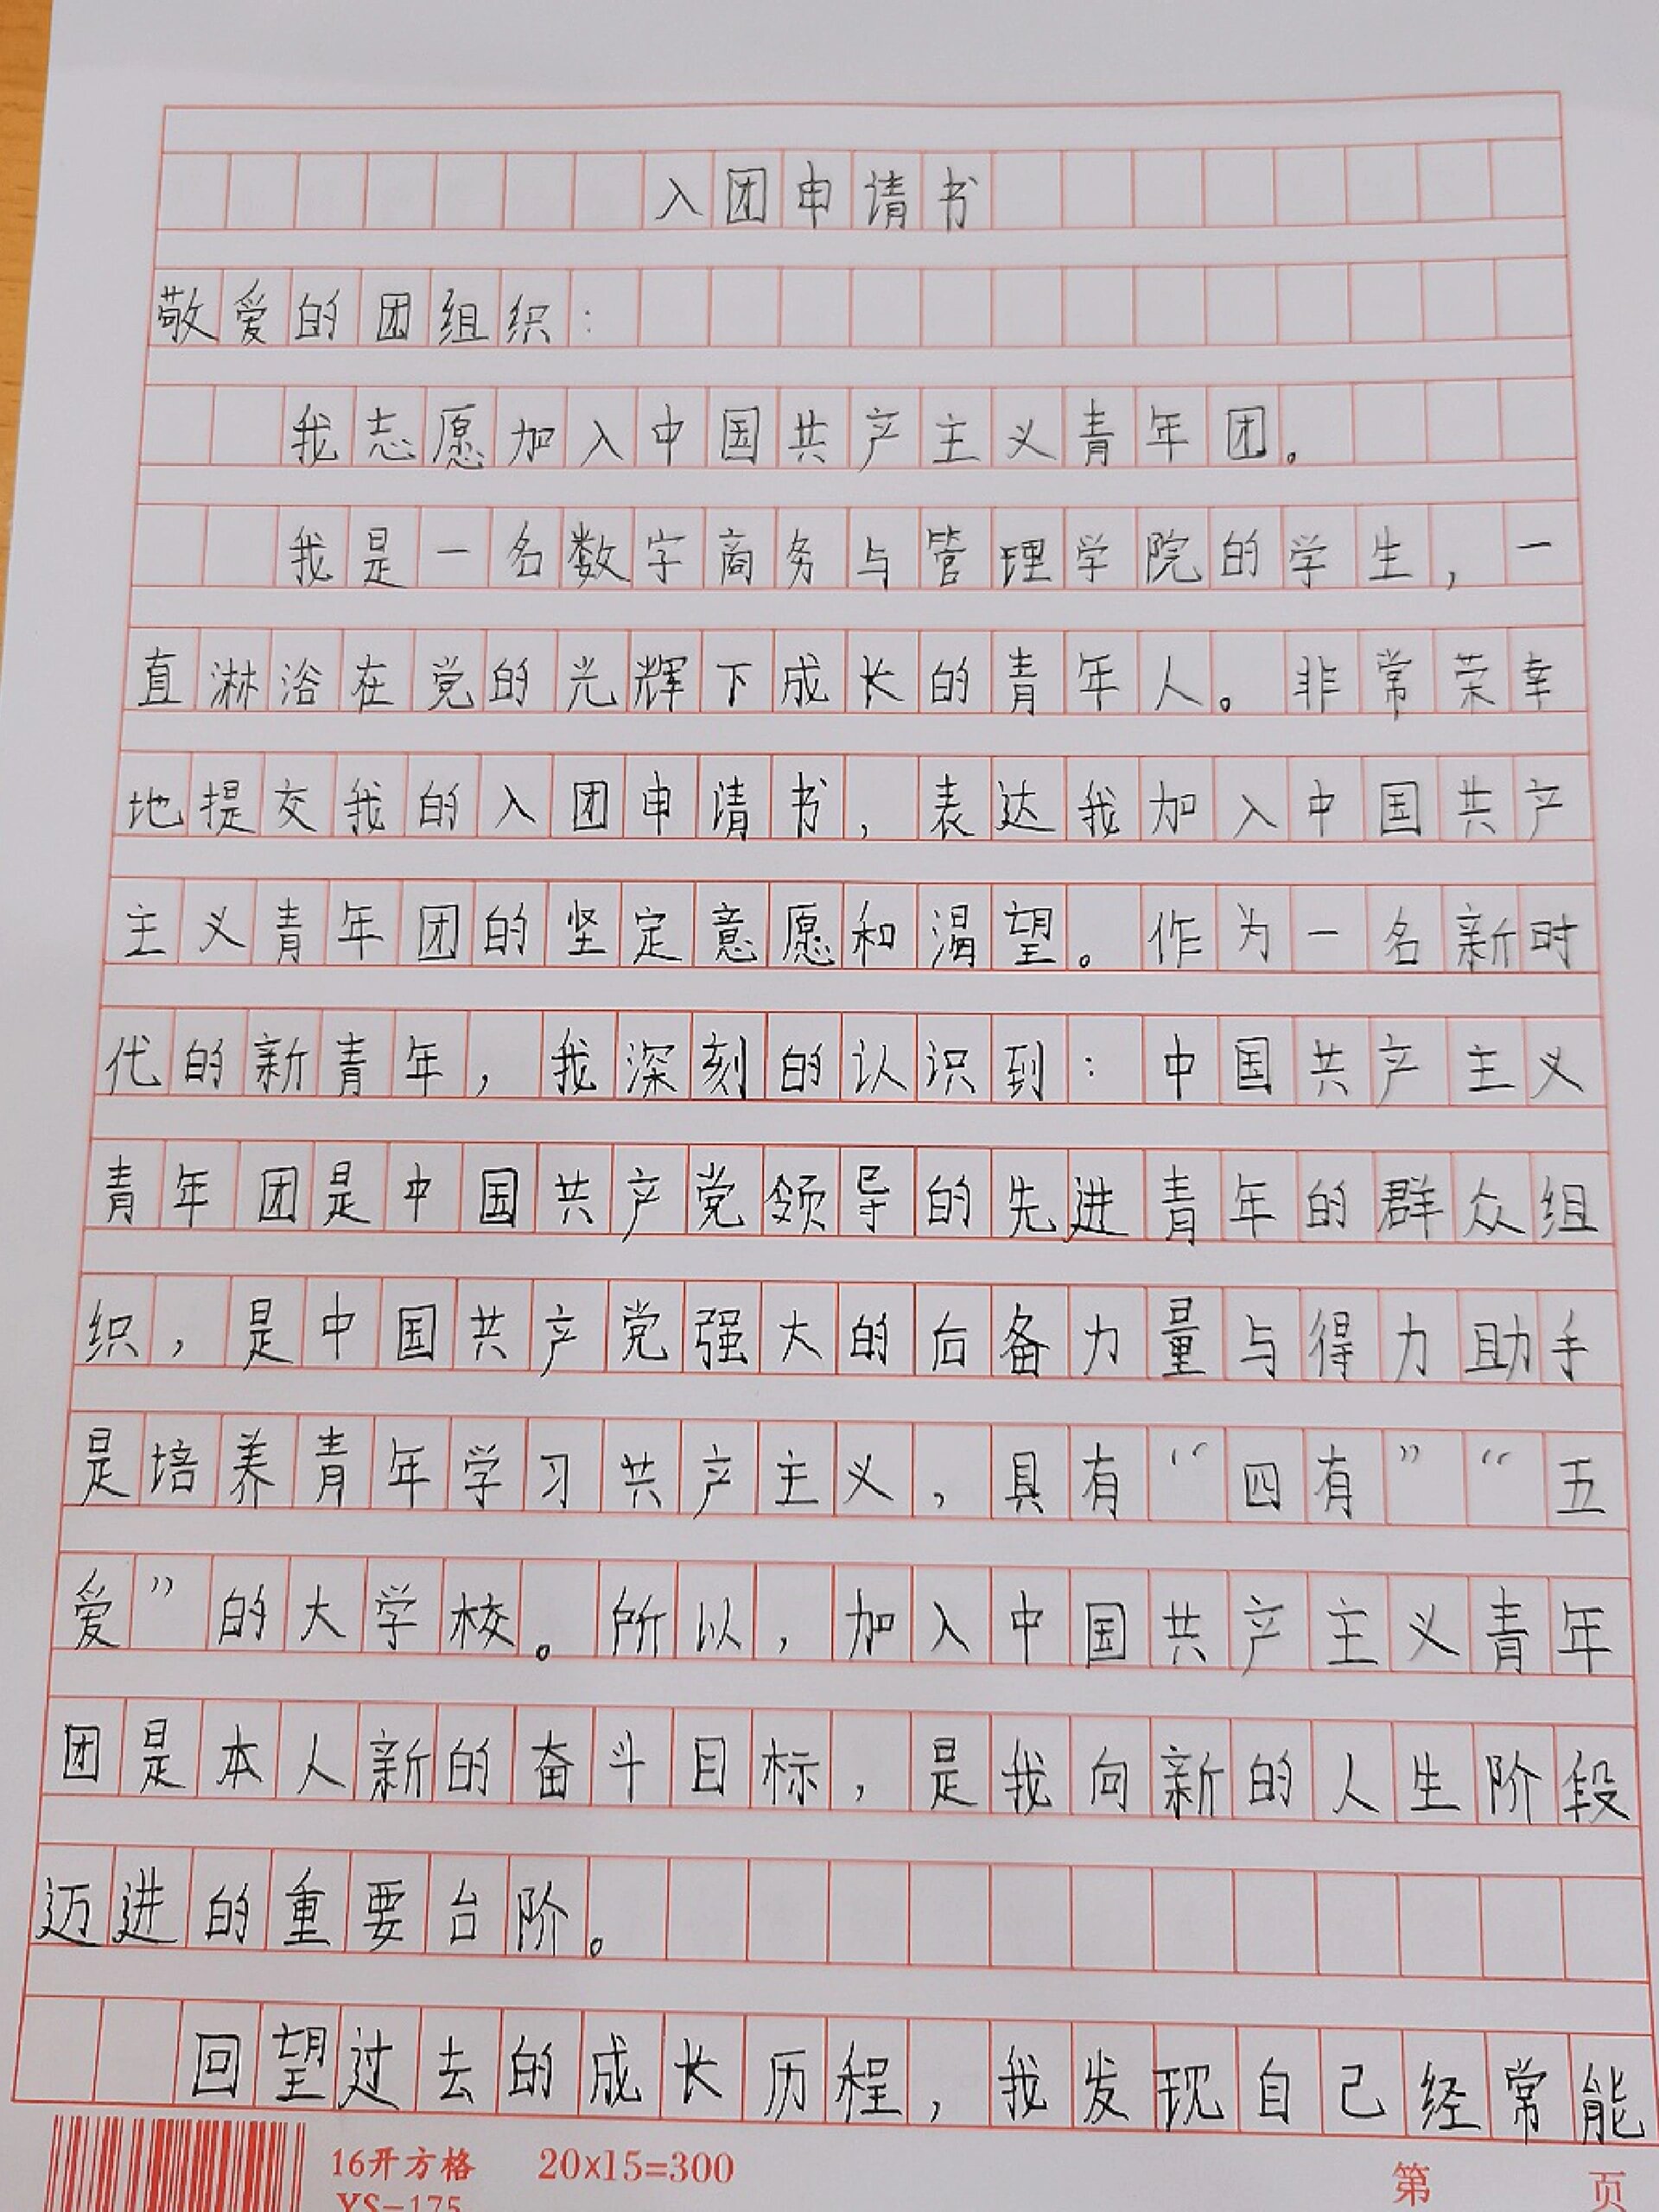 入团申请书
敬爱的团组织：
我志愿加入中国共产主义青年团。
我是一名数字商务与管理学院的学生，一
直淋浴在党的光辉下成长的青年人。非常荣幸
地提交我的入团申请书，表达我加入中国共产
主义青年团的坚定意愿和渴望。作为一名新时
代的新青年，我深刻的认识到：中国共产主义
青年团是中国共产党领导的先进青年的群众组
织，是中国共产党强大的后备力量与得力助手
是培养青年学习共产主义，具有“四有”“五
爱”的大学校。所以，加入中国共产主义青年
团是本人新的奋斗目标，是我向新的人生阶段
迈进的重要台阶。
回望过去的成长历程，我发现自己经常能
16开方格 20x15=300
YS-175
第 页